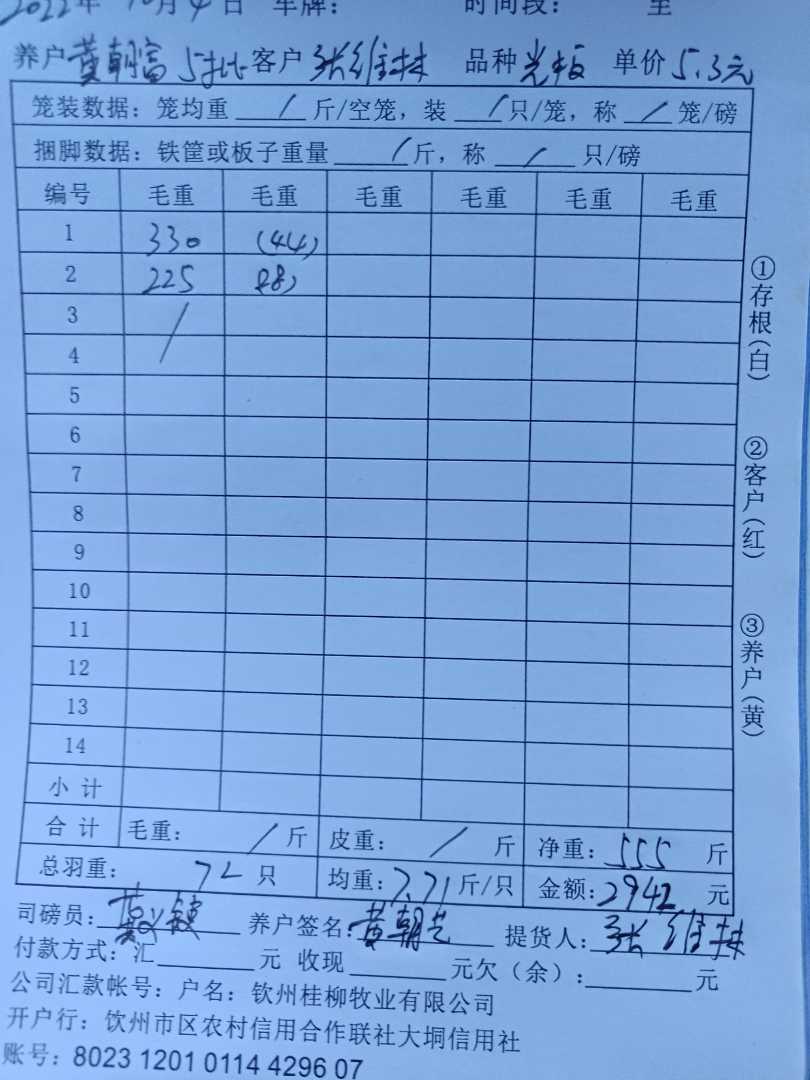 2022年10月4日 车牌: 时间段: 至
养户黄朝富 5批 客户 张维林 品种 光板 单价 5.3元
笼装数据: 笼均重 / 斤/空笼, 装 / 只/笼, 称 / 笼/磅
捆脚数据: 铁筐或板子重量 / 斤, 称 / 只/磅
编号 毛重 毛重 毛重 毛重 毛重 毛重
1 330 (44)
2 225 (28)
3 /
4
5
6
7
8
9
10
11
12
13
14
小计
合计 毛重: / 斤 皮重: / 斤 净重: 555 斤
总羽重: 72 只 均重: 7.71 斤/只 金额: 2942 元
司磅员: 养户签名: 黄朝 提货人: 张维林
付款方式: 汇 元 收现 元欠(余): 元
公司汇款帐号: 户名: 钦州桂柳牧业有限公司
开户行: 钦州市区农村信用合作联社大垌信用社
账号: 8023 1201 0114 4296 07
①存根(白)
②客户(红)
③养户(黄)